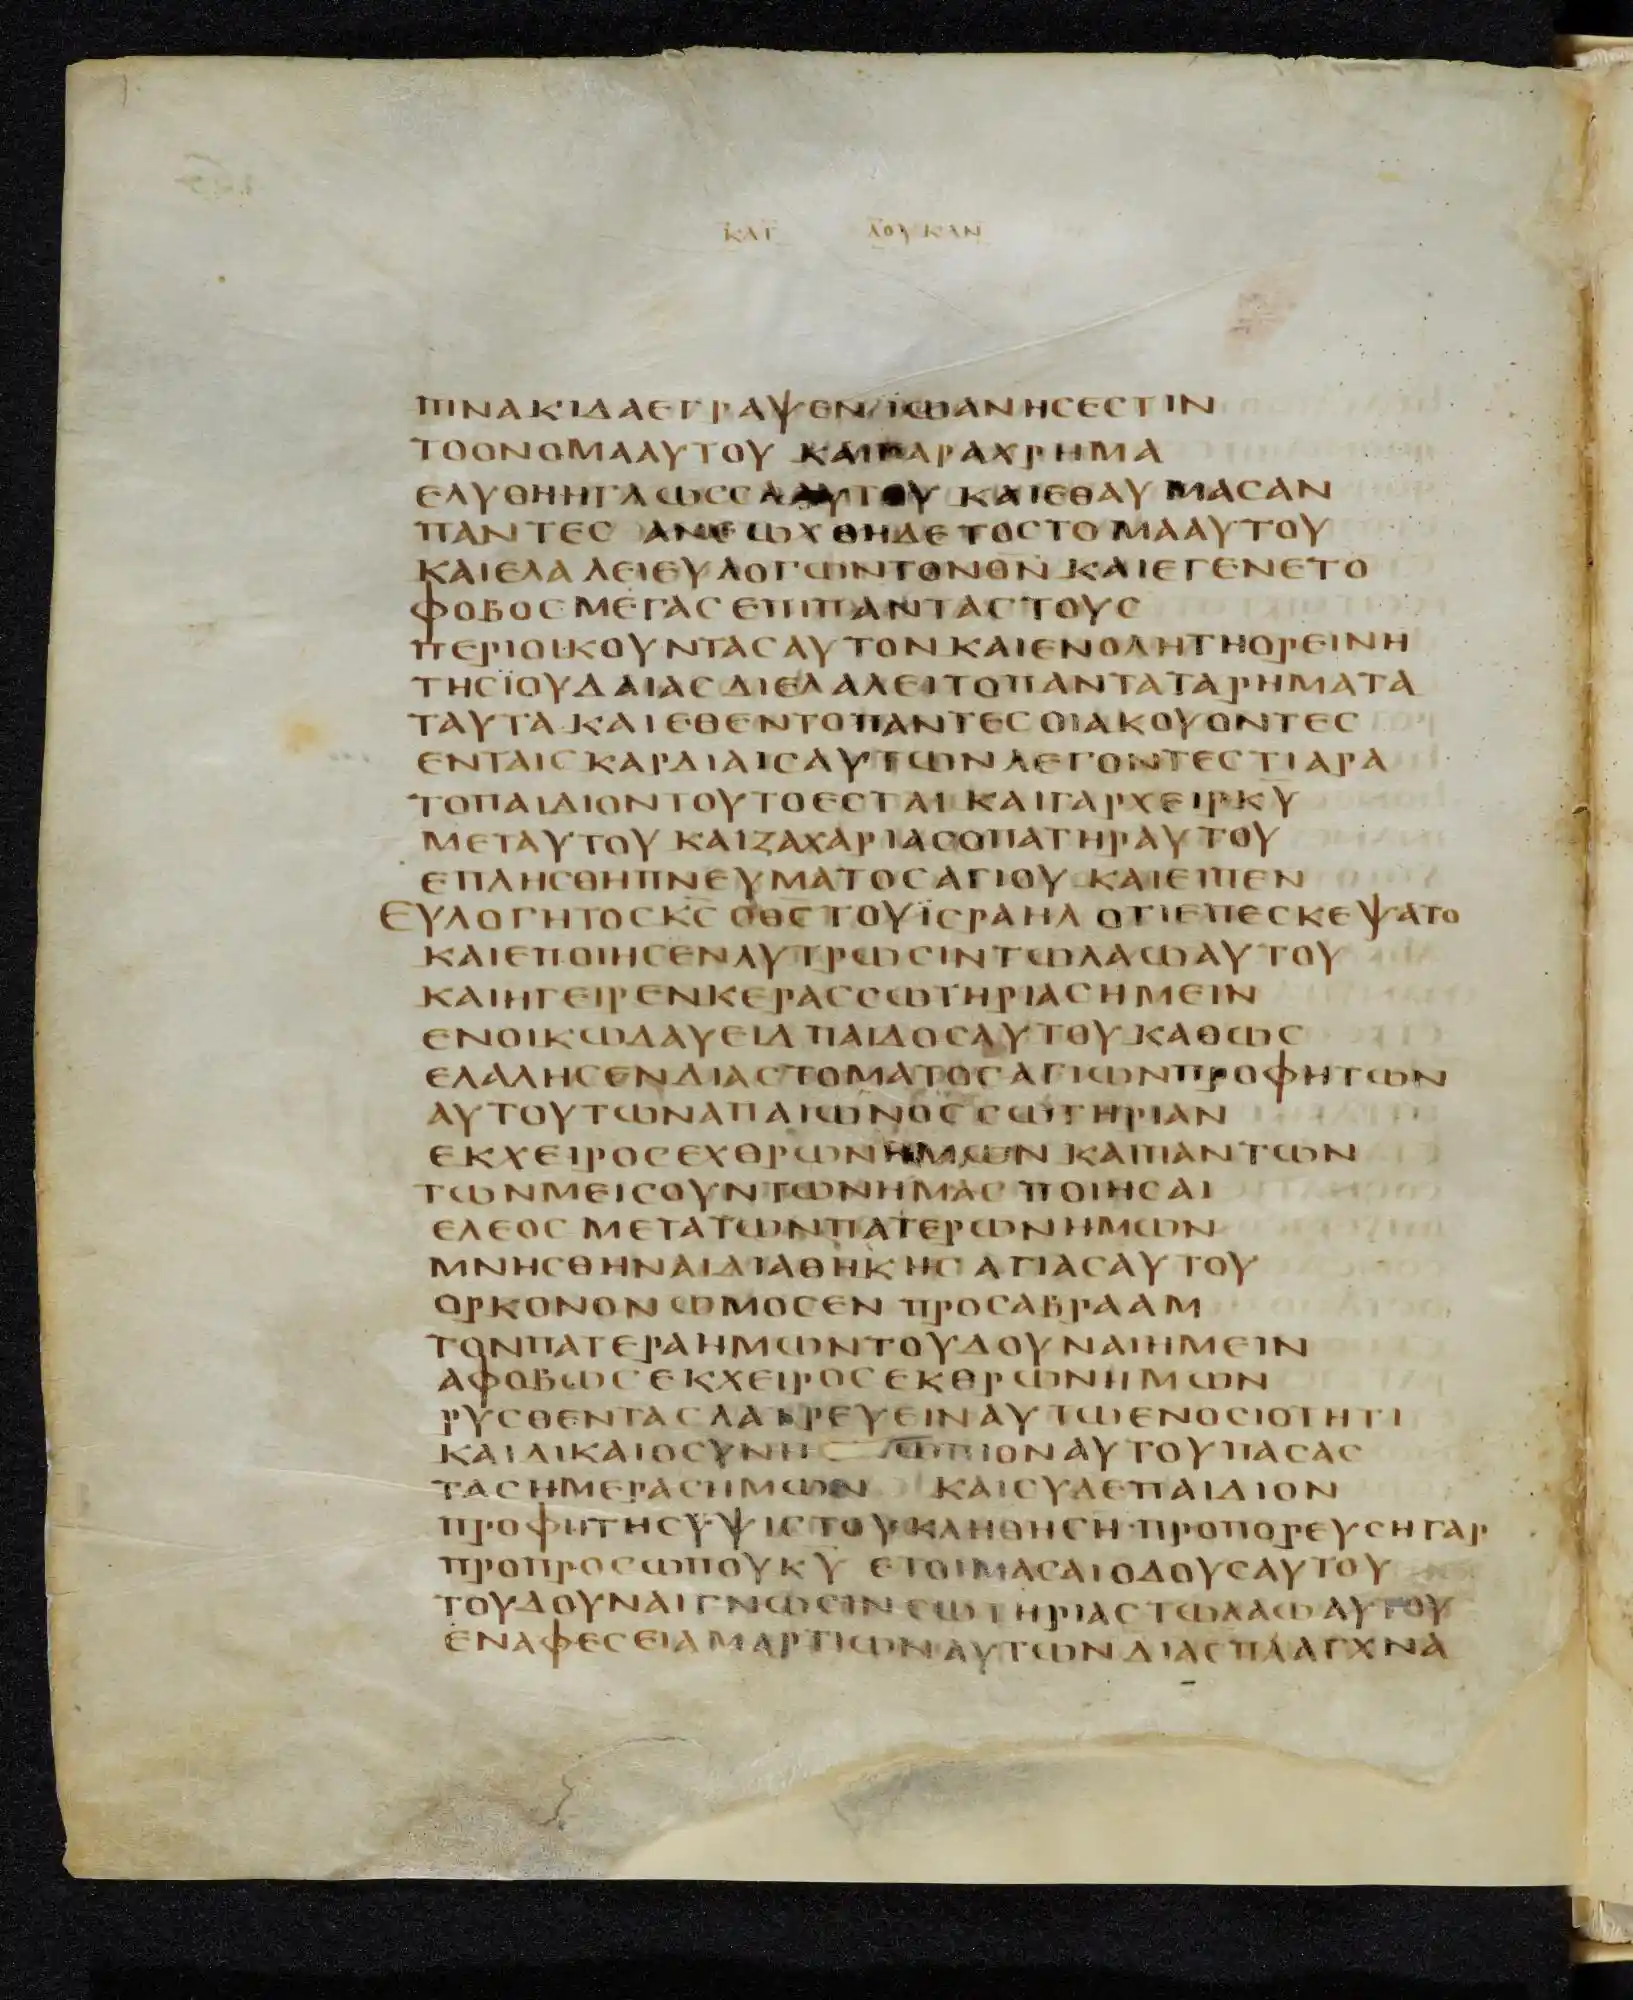 ΚΑΤ ΛΟΥΚΑΝ
ΠΙΝΑΚΙΔΑΕΓΡΑΨΕΝ ΙΩΑΝΗϹΕϹΤΙΝ
ΤΟΟΝΟΜΑΑΥΤΟΥ ΚΑΙΠΑΡΑΧΡΗΜΑ
ΕΛΥΘΗΗΓΛΩϹϹΑΑΥΤΟΥ ΚΑΙΕΘΑΥΜΑϹΑΝ
ΠΑΝΤΕϹ ΑΝΕΩΧΘΗΔΕΤΟϹΤΟΜΑΑΥΤΟΥ
ΚΑΙΕΛΑΛΕΙΕΥΛΟΓΩΝΤΟΝΘΝ̅ ΚΑΙΕΓΕΝΕΤΟ
ΦΟΒΟϹΜΕΓΑϹΕΠΙΠΑΝΤΑϹΤΟΥϹ
ΠΕΡΙΟΙΚΟΥΝΤΑϹΑΥΤΟΝΚΑΙΕΝΟΛΗΤΗΟΡΕΙΝΗ
ΤΗϹΪΟΥΔΑΙΑϹΔΙΕΛΑΛΕΙΤΟΠΑΝΤΑΤΑΡΗΜΑΤΑ
ΤΑΥΤΑ ΚΑΙΕΘΕΝΤΟΠΑΝΤΕϹΟΙΑΚΟΥΟΝΤΕϹ
ΕΝΤΑΙϹΚΑΡΔΙΑΙϹΑΥΤΩΝΛΕΓΟΝΤΕϹΤΙΑΡΑ
ΤΟΠΑΙΔΙΟΝΤΟΥΤΟΕϹΤΑΙ ΚΑΙΓΑΡΧΕΙΡΚΥ̅
ΜΕΤΑΥΤΟΥ ΚΑΙΖΑΧΑΡΙΑϹΟΠΑΤΗΡΑΥΤΟΥ
ΕΠΛΗϹΘΗΠΝΕΥΜΑΤΟϹΑΓΙΟΥ ΚΑΙΕΙΠΕΝ
ΕΥΛΟΓΗΤΟϹΚϹ̅ ΟΘϹ̅ΤΟΥΪϹΡΑΗΛ ΟΤΙΕΠΕϹΚΕΨΑΤΟ
ΚΑΙΕΠΟΙΗϹΕΝΛΥΤΡΩϹΙΝΤΩΛΑΩΑΥΤΟΥ
ΚΑΙΗΓΕΙΡΕΝΚΕΡΑϹϹΩΤΗΡΙΑϹΗΜΕΙΝ
ΕΝΟΙΚΩΔΑΥΕΙΔ ΠΑΙΔΟϹΑΥΤΟΥ ΚΑΘΩϹ
ΕΛΑΛΗϹΕΝΔΙΑϹΤΟΜΑΤΟϹΑΓΙΩΝΠΡΟΦΗΤΩΝ
ΑΥΤΟΥΤΩΝΑΠΑΙΩΝΟϹϹΩΤΗΡΙΑΝ
ΕΚΧΕΙΡΟϹΕΧΘΡΩΝΗΜΩΝ ΚΑΙΠΑΝΤΩΝ
ΤΩΝΜΕΙϹΟΥΝΤΩΝΗΜΑϹ ΠΟΙΗϹΑΙ
ΕΛΕΟϹ ΜΕΤΑΤΩΝΠΑΤΕΡΩΝΗΜΩΝ
ΜΝΗϹΘΗΝΑΙΔΙΑΘΗΚΗϹ ΑΓΙΑϹΑΥΤΟΥ
ΟΡΚΟΝΟΝΩΜΟϹΕΝ ΠΡΟϹΑΒΡΑΑΜ
ΤΟΝΠΑΤΕΡΑΗΜΩΝΤΟΥΔΟΥΝΑΙΗΜΕΙΝ
ΑΦΟΒΩϹΕΚΧΕΙΡΟϹΕΚΘΡΩΝΗΜΩΝ
ΡΥϹΘΕΝΤΑϹΛΑΤΡΕΥΕΙΝΑΥΤΩΕΝΟϹΙΟΤΗΤΙ
ΚΑΙΔΙΚΑΙΟϹΥΝΗ ΩΠΙΟΝΑΥΤΟΥΠΑϹΑϹ
ΤΑϹΗΜΕΡΑϹΗΜΩΝ ΚΑΙϹΥΔΕΠΑΙΔΙΟΝ
ΠΡΟΦΗΤΗϹΫΨΙϹΤΟΥΚΛΗΘΗϹΗ ΠΡΟΠΟΡΕΥϹΗΓΑΡ
ΠΡΟΠΡΟϹΩΠΟΥΚΥ̅ ΕΤΟΙΜΑϹΑΙΟΔΟΥϹΑΥΤΟΥ
ΤΟΥΔΟΥΝΑΙΓΝΩϹΙΝϹΩΤΗΡΙΑϹΤΩΛΑΩΑΥΤΟΥ
ΕΝΑΦΕϹΕΙΑΜΑΡΤΙΩΝΑΥΤΩΝΔΙΑϹΠΛΑΓΧΝΑ